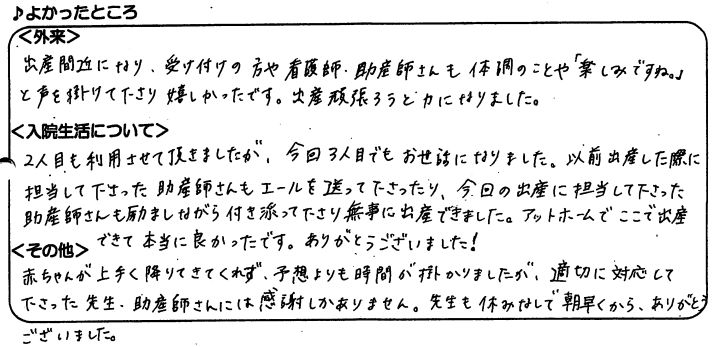 ♪よかったところ
<外来>
出産間近になり、受け付けの方や看護師・助産師さんも体調のことや「楽しみですね。」
と声を掛けて下さり嬉しかったです。出産頑張ろうと力になりました。
<入院生活について>
2人目も利用させて頂きましたが、今回3人目でもお世話になりました。以前出産した際に
担当して下さった助産師さんもエールを送って下さったり、今回の出産に担当して下さった
助産師さんも励ましながら付き添って下さり無事に出産できました。アットホームでここで出産
できて本当に良かったです。ありがとうございました!
<その他>
赤ちゃんが上手く降りてきてくれず、予想よりも時間が掛かりましたが、適切に対応して
下さった先生・助産師さんには感謝しかありません。先生も休みなしで朝早くから、ありがとう
ございました。